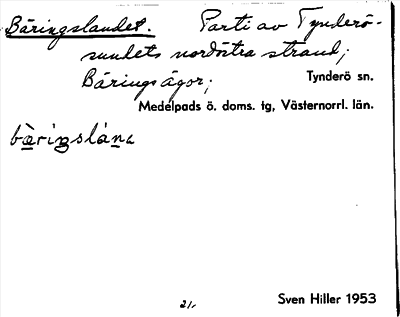 Bäringslandet. Parti av Tynderö-
sundets nordöstra strand;
Bärings ägor; Tynderö sn.
Medelpads ö. doms. tg, Västernorrl. län.
bàriŋslána
21/-
Sven Hiller 1953